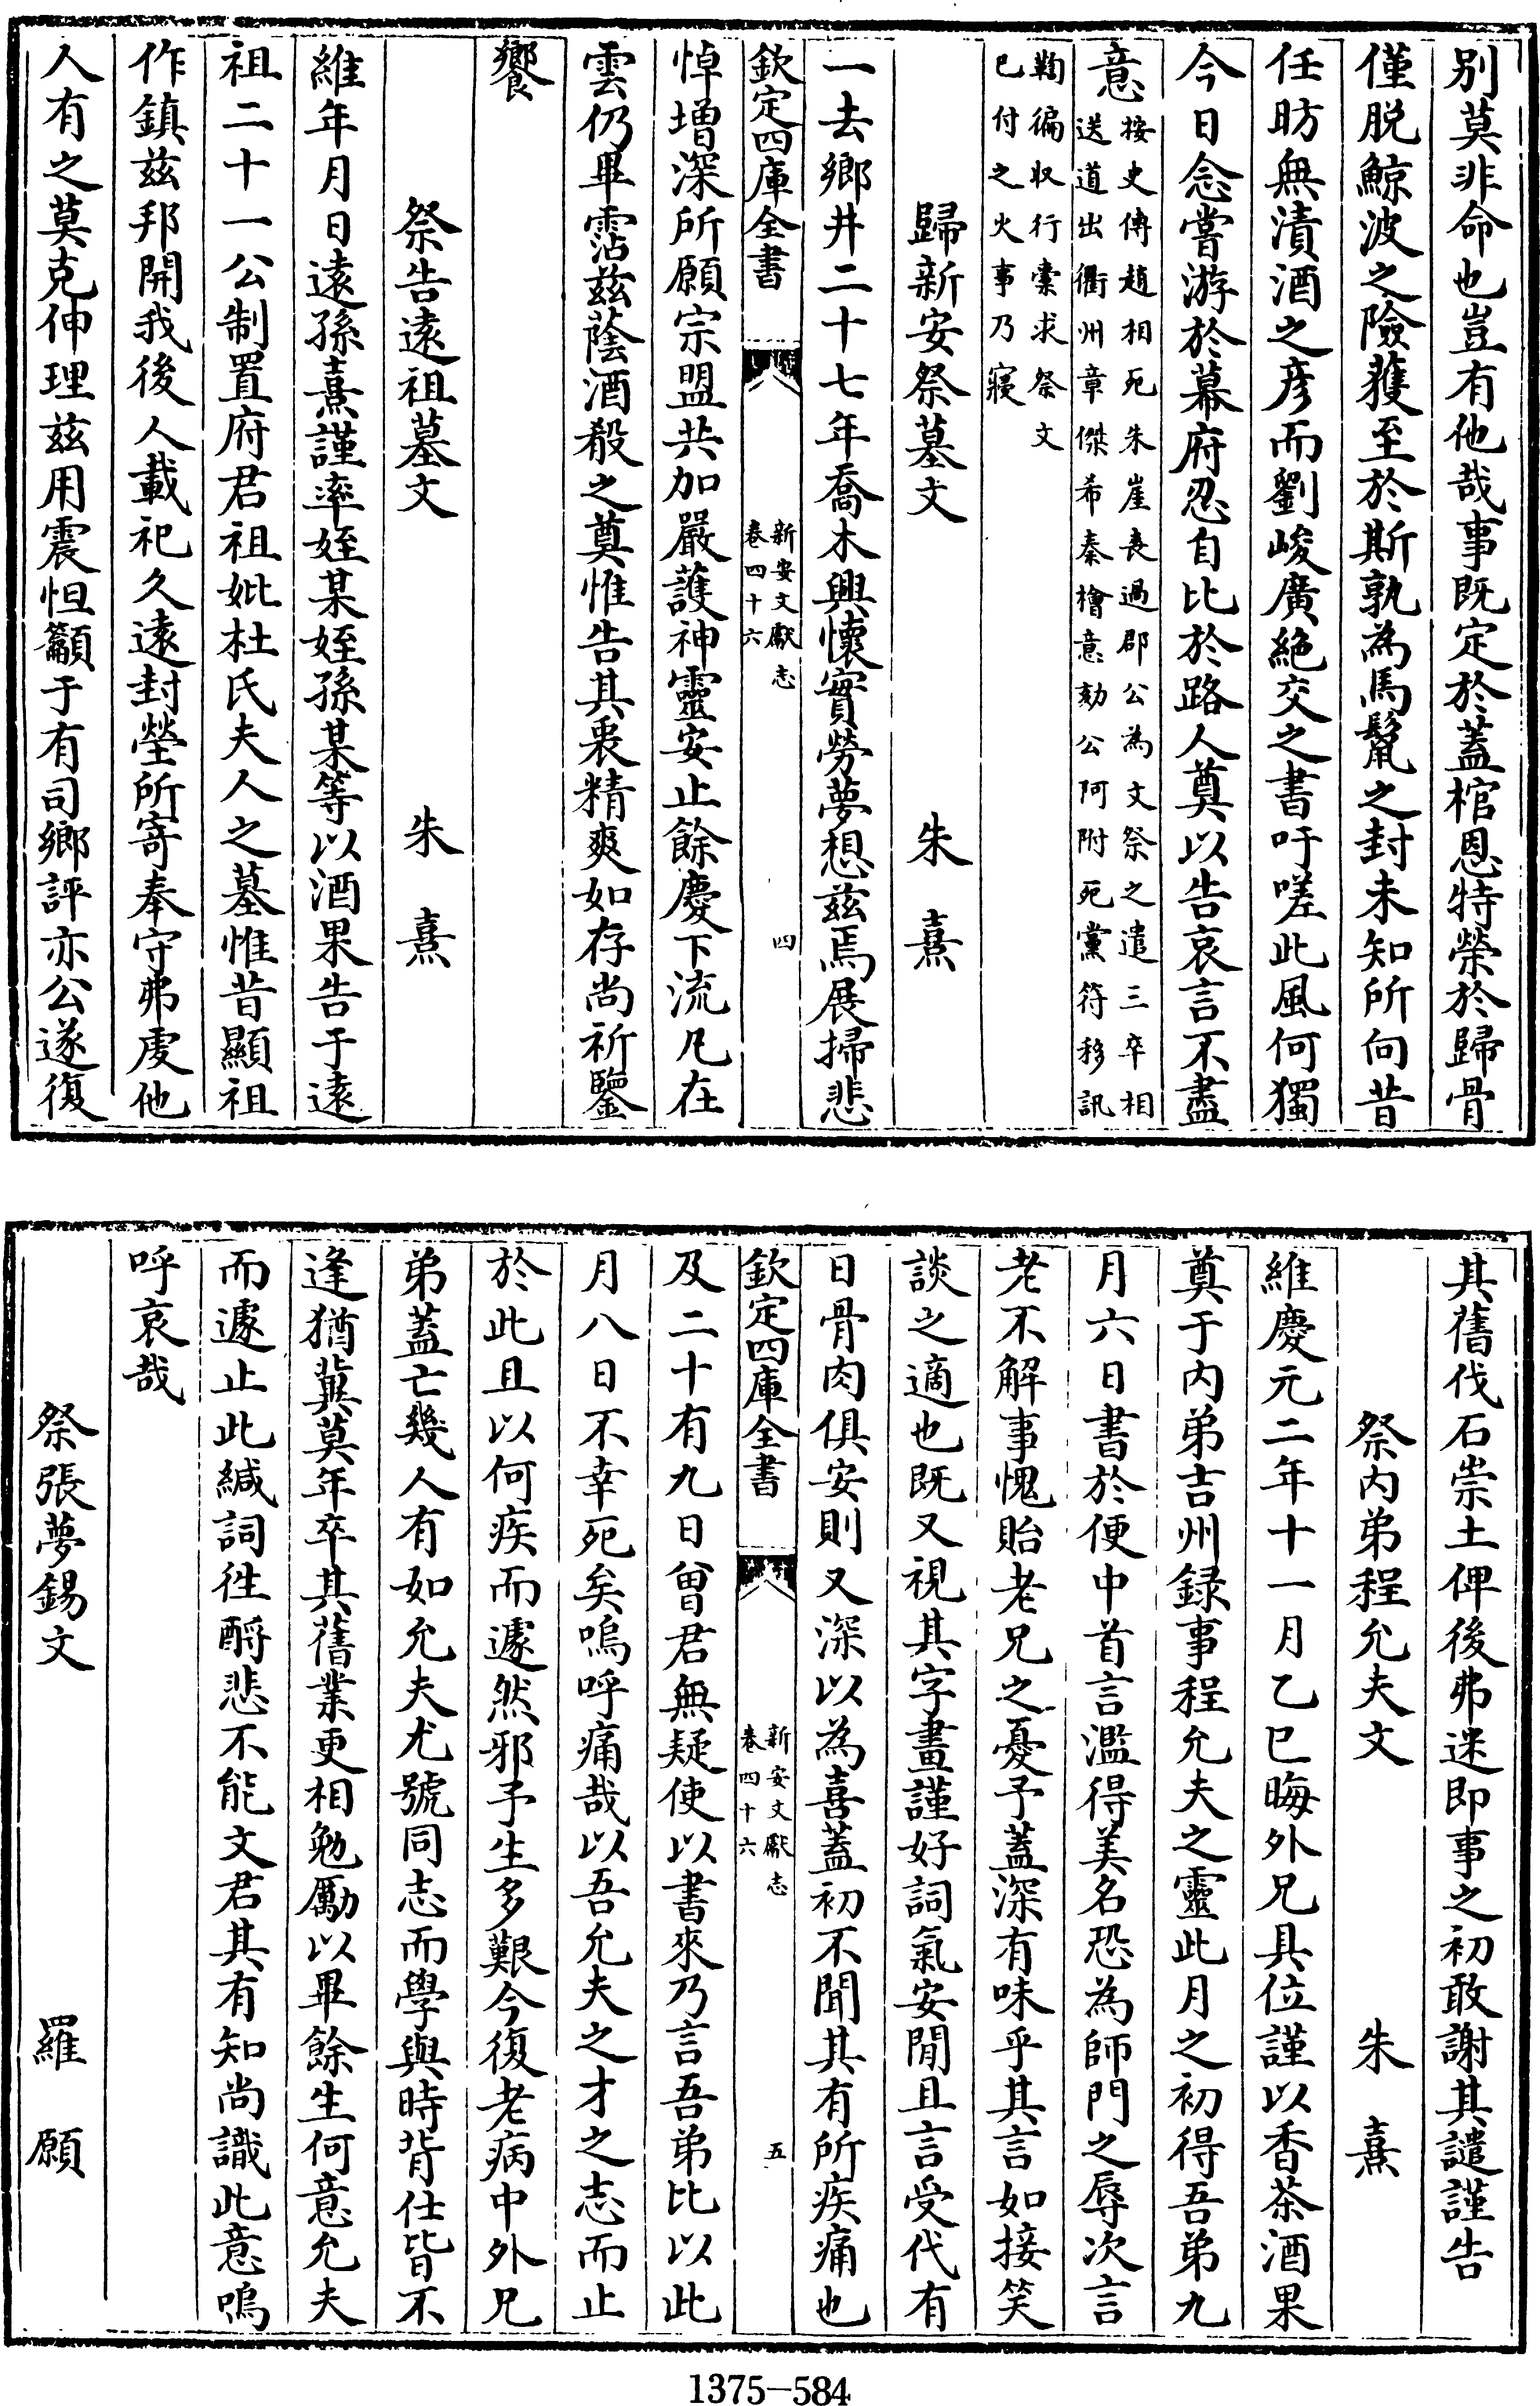 别莫非命也豈有他哉事既定於蓋棺恩特榮於歸骨
僅脱鯨波之險獲至於斯孰為馬鬛之封未知所向昔
任昉無漬酒之彦而劉峻廣絶交之書吁嗟此風何獨
今日念嘗游於幕府忍自比於路人奠以告哀言不盡
意按史傳趙相死朱崖喪過郡公為文祭之遣三卒相
送道出衢州章傑希秦檜意劾公阿附死黨符移訊
鞫徧収行橐求祭文
已付之火事乃寢
歸新安祭墓文 朱熹
一去鄉井二十七年喬木興懷實勞夢想茲焉展掃悲
欽定四庫全書 新安文獻志
卷四十六 四
悼增深所願宗盟共加嚴護神靈安止餘慶下流凡在
雲仍畢霑茲蔭酒殽之奠惟告其衷精爽如存尚祈鑒
饗
祭告遠祖墓文 朱熹
維年月日遠孫熹謹率姪某姪孫某等以酒果告于遠
祖二十一公制置府君祖妣杜氏夫人之墓惟昔顯祖
作鎮茲邦開我後人載祀久遠封塋所寄奉守弗虔他
人有之莫克伸理茲用震怛籲于有司鄉評亦公遂復
其舊伐石崇土俾後弗迷即事之初敢謝其譴謹告
祭内弟程允夫文 朱熹
維慶元二年十一月乙巳晦外兄具位謹以香茶酒果
奠于内弟吉州録事程允夫之靈此月之初得吾弟九
月六日書於便中首言濫得美名恐為師門之辱次言
老不解事愧貽老兄之憂予蓋深有味乎其言如接笑
談之適也既又視其字畫謹好詞氣安閒且言受代有
日骨肉俱安則又深以為喜蓋初不聞其有所疾痛也
欽定四庫全書 新安文獻志
卷四十六 五
及二十有九日曾君無疑使以書來乃言吾弟比以此
月八日不幸死矣嗚呼痛哉以吾允夫之才之志而止
於此且以何疾而遽然邪予生多艱今復老病中外兄
弟蓋亡幾人有如允夫尤號同志而學與時背仕皆不
逢猶冀莫年卒其舊業更相勉勵以畢餘生何意允夫
而遽止此緘詞徃酹悲不能文君其有知尚識此意嗚
呼哀哉
祭張夢錫文 羅願
1375-584